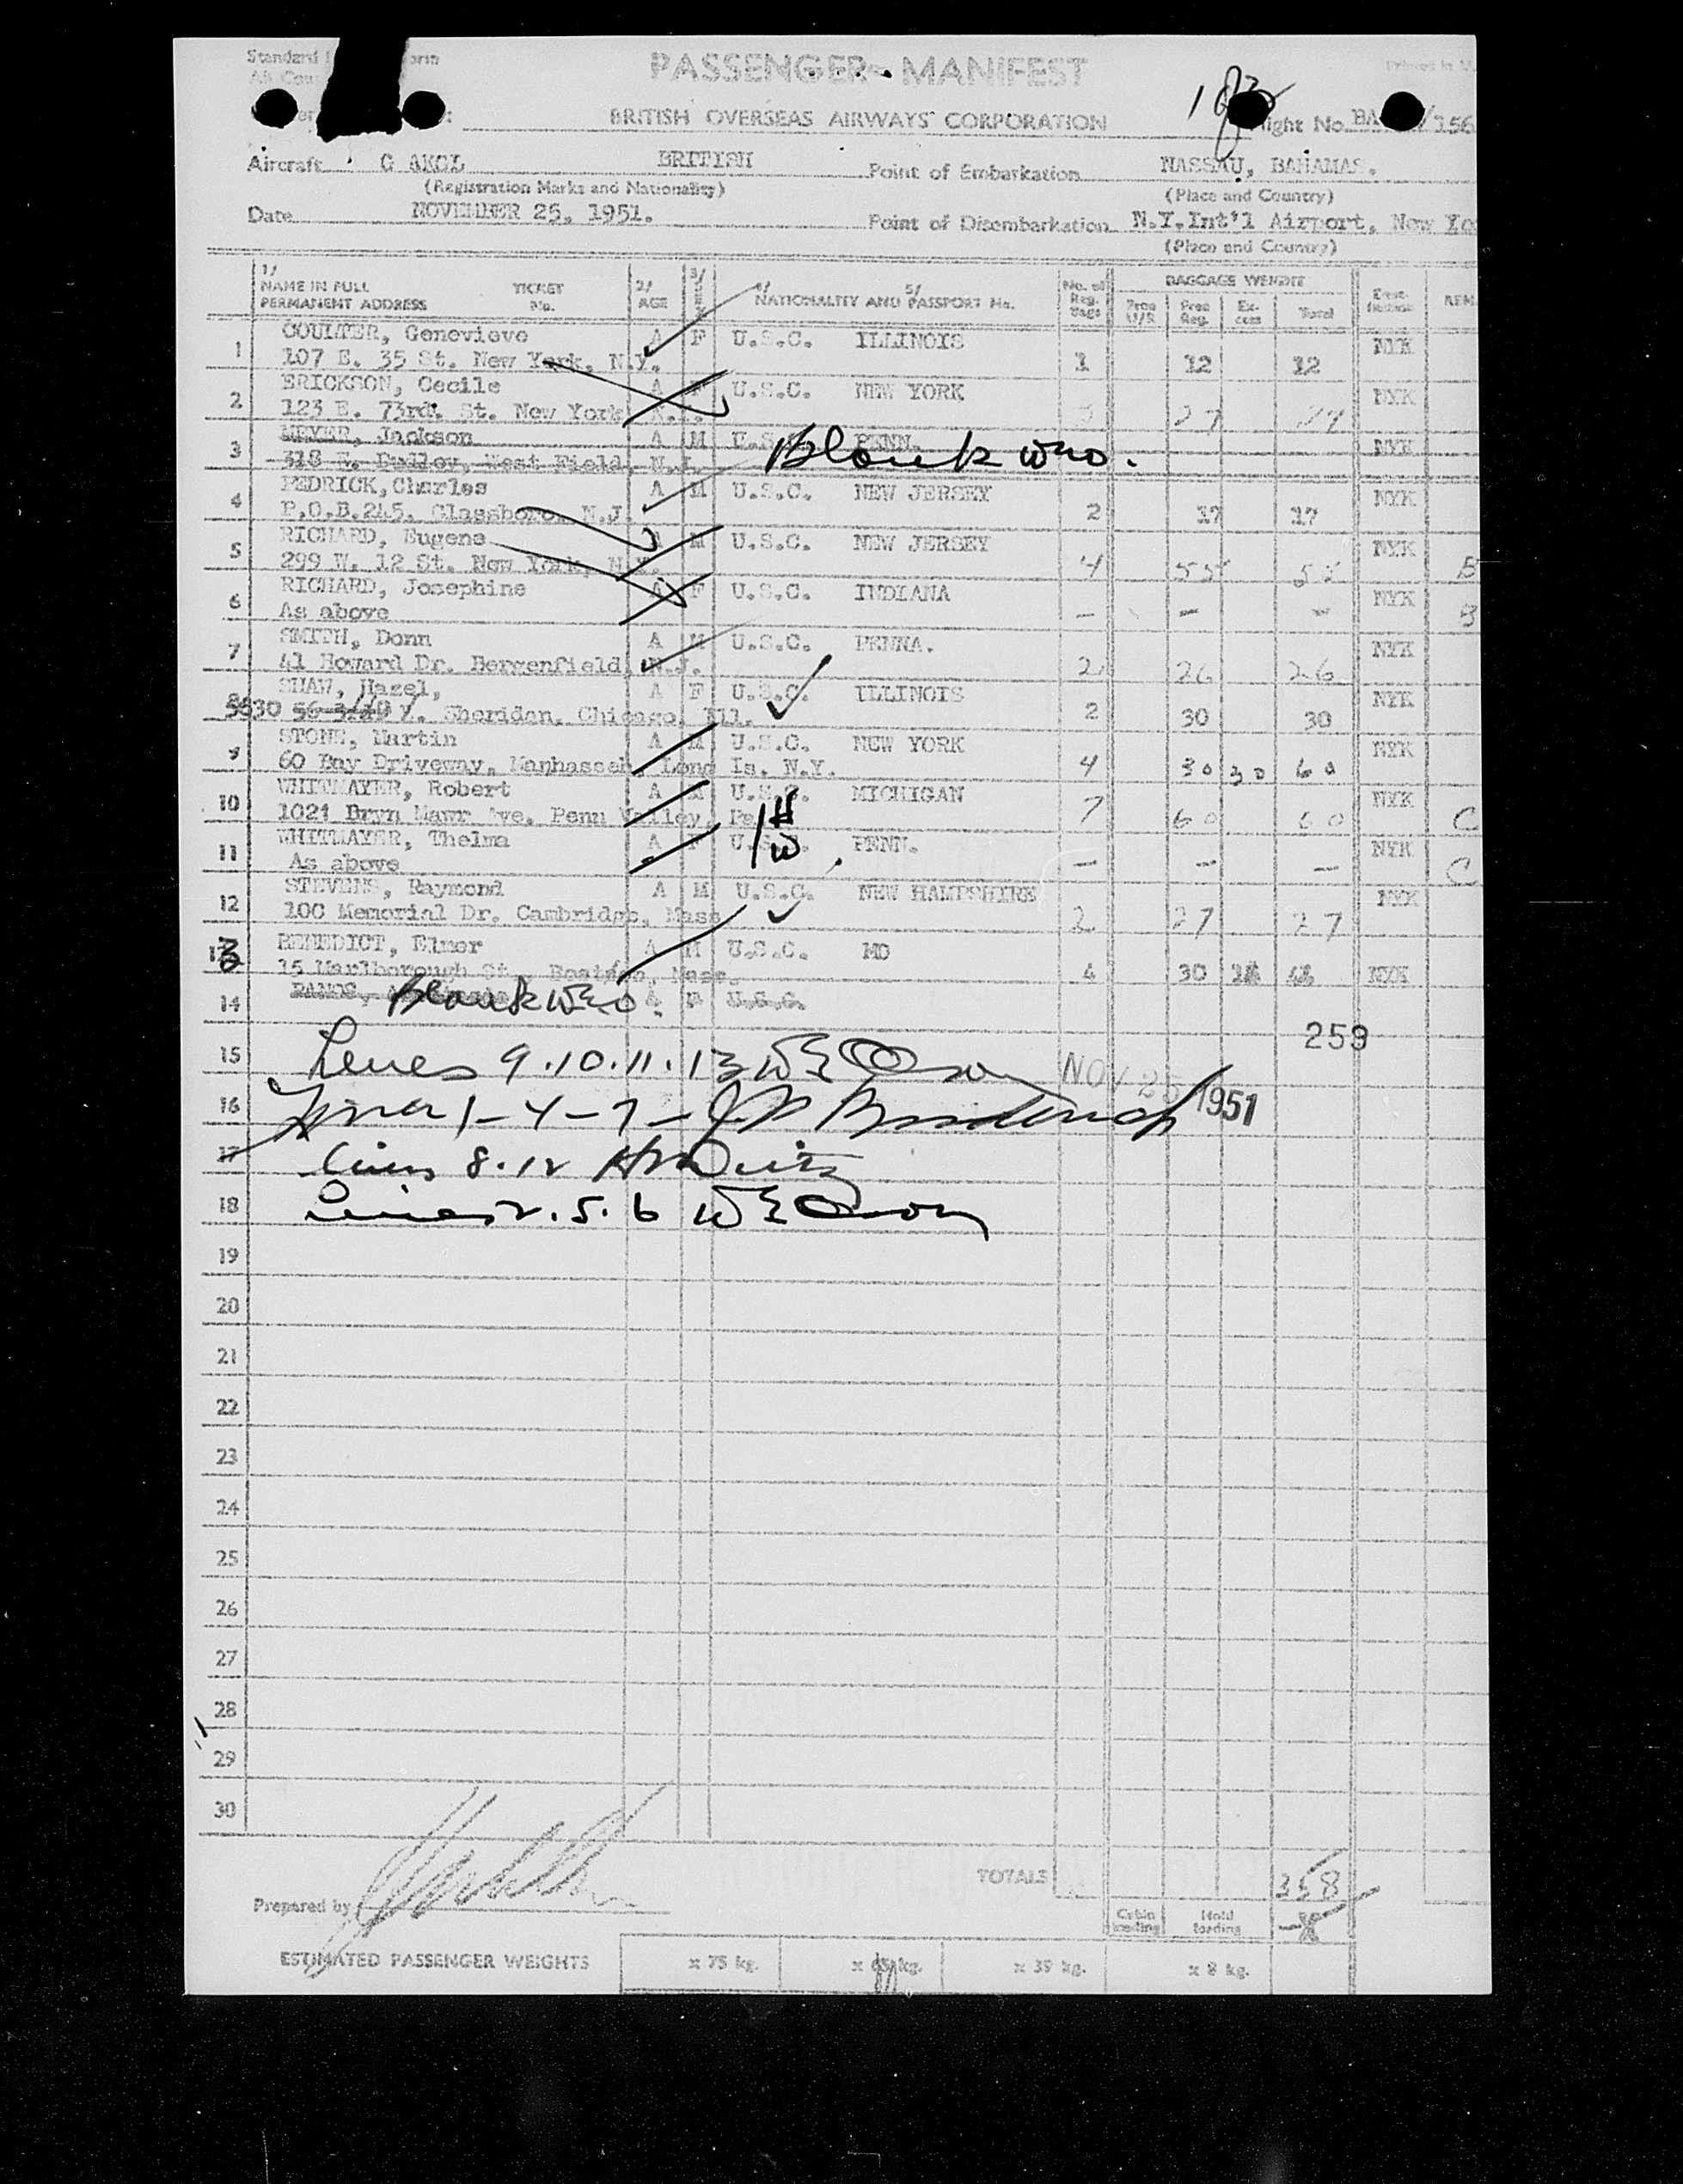 PASSENGER MANIFEST
BRITISH OVERSEAS AIRWAYS CORPORATION
Flight No. BA /156
Aircraft G AKGL BRITISH Point of Embarkation NASSAU, BAHAMAS.
(Registration Marks and Nationality) (Place and Country)
Date NOVEMBER 25, 1951. Point of Disembarkation N.Y.Int'l Airport, New Yo
(Place and Country)
1/ NAME IN FULL PERMANENT ADDRESS TICKET No. 2/ AGE 3/ 4/ NATIONALITY AND 5/ PASSPORT No. No. of Reg. Bags BAGGAGE WEIGHT Free U/R Free Reg. Ex-cess Total REM
1 COULTER, Genevieve A F U.S.C. ILLINOIS NYK
107 E. 35 St. New York, N.Y. 1 12 12
2 ERICKSON, Cecile A F U.S.C. NEW YORK NYK
123 E. 73rd. St. New York N.Y. 27 27
3 MEYER, Jackson A M U.S.C. PENN. NYK
318 E. Dudley, West Field, N.J. Blank WEO.
4 PEDRICK, Charles A M U.S.C. NEW JERSEY NYK
P.O.B.245. Glassboro, N.J. 2 17 17
5 RICHARD, Eugene A M U.S.C. NEW JERSEY NYK
299 W. 12 St. New York, N.Y. 4 55 55 B
6 RICHARD, Josephine A F U.S.C. INDIANA NYK
As above - - - B
7 SMITH, Donn A M U.S.C. PENNA. NYK
41 Howard Dr. Bergenfield, N.J. 2 26 26
8 SHAW, Hazel, A F U.S.C. ILLINOIS NYK
5530 Sheridan, Chicago, Ill. 2 30 30
9 STONE, Martin A M U.S.C. NEW YORK NYK
60 Bay Driveway, Manhasset, Long Is. N.Y. 4 30 30 60
10 WHITMAYER, Robert A M U.S.C. MICHIGAN NYK
1021 Bryn Mawr Ave. Penn Valley, Pa. H 7 60 60 C
11 WHITMAYER, Thelma A F U.S.C. W PENN. NYK
As above - - - C
12 STEVENS, Raymond A M U.S.C. NEW HAMPSHIRE NYK
100 Memorial Dr. Cambridge, Mass 2 27 27
13 BENEDICT, Elmer A M U.S.C. MO
15 Marlborough St., Boston, Mass. 4 30 NYK
14 RAMOS, Blank WEO A M U.S.C.
259
15 Lines 9.10.11.13 WE Olson NOV 25 1951
16 Lines 1-4-7-
17 Lines 8.12
18 Lines 2.5.6 WE Olson
19
20
21
22
23
24
25
26
27
28
29
30
TOTALS 358
Prepared by
Cabin loading Hold loading
ESTIMATED PASSENGER WEIGHTS x 75 kg. x 65 kg. x 39 kg. x 8 kg.